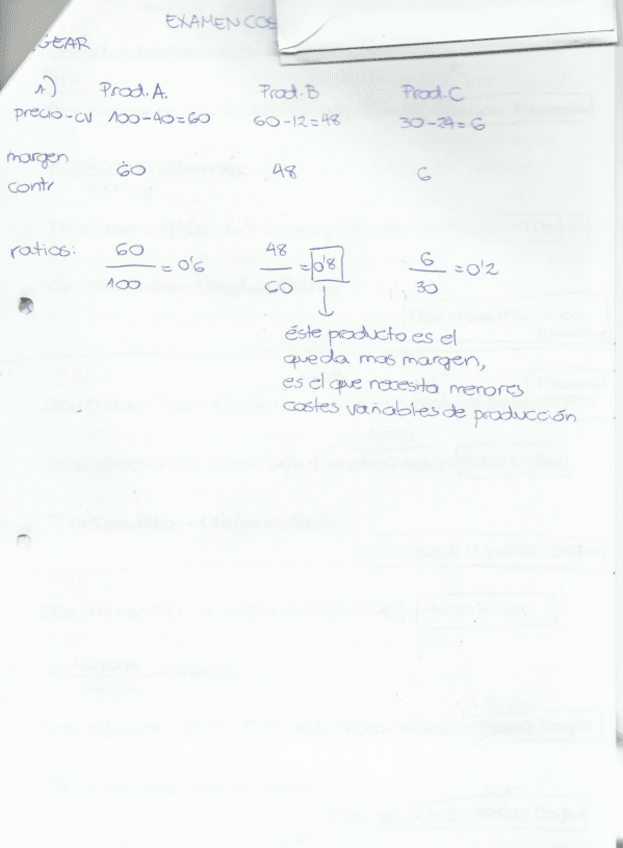 EXAMEN COS
GEAR
1) Prod. A. Prod. B Prod. C
precio-CV 100-40=60 60-12=48 30-24=6
margen 60 48 6
contr
ratios: 60/100 = 0'6 48/60 = 0'8 6/30 = 0'2
éste producto es el
que da mas margen,
es el que necesita menores
costes variables de producción